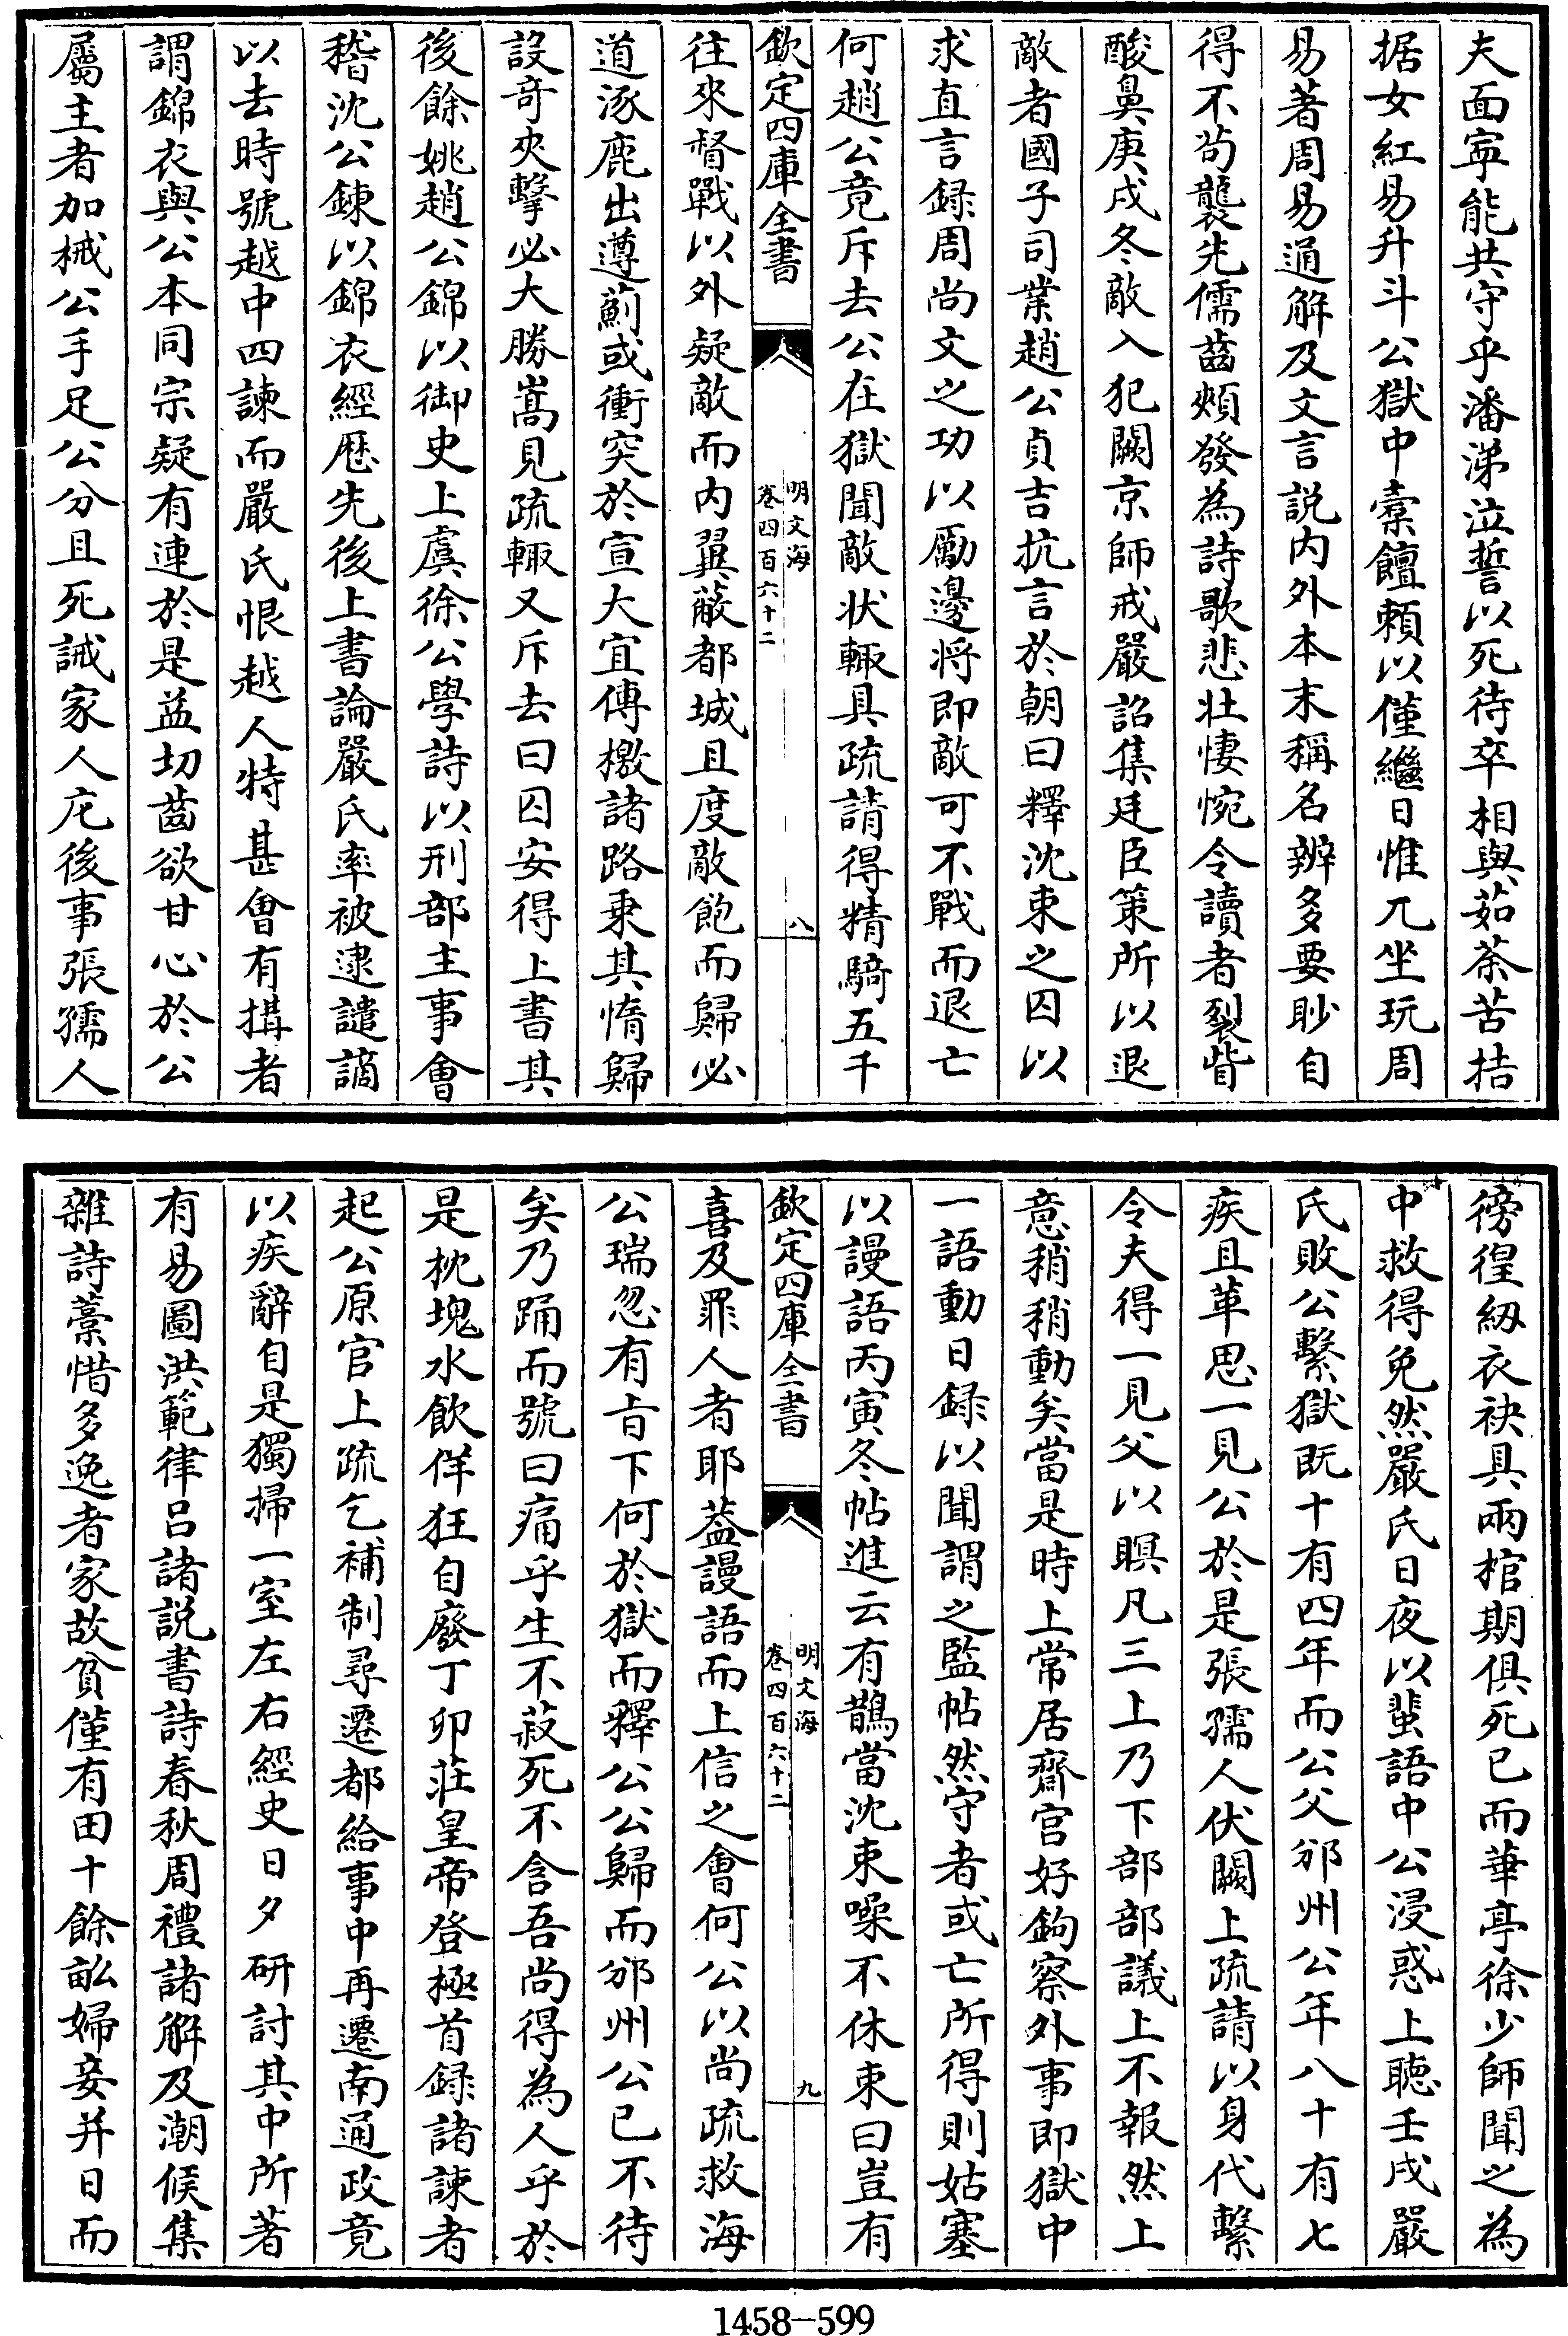 夫面寧能共守乎潘涕泣誓以死待卒相與茹荼苦拮
据女紅易升斗公獄中橐饘頼以僅繼日惟兀坐玩周
易著周易通解及文言説内外本末稱名辨多要眇自
得不茍襲先儒齒頰發為詩歌悲壯悽惋令讀者裂眥
酸鼻庚戌冬敵入犯闕京師戒嚴詔集廷臣策所以退
敵者國子司業趙公貞吉抗言於朝曰釋沈束之囚以
求直言録周尚文之功以勵邊將即敵可不戰而退亡
何趙公竟斥去公在獄聞敵狀輒具疏請得精騎五千
欽定四庫全書
明文海
卷四百六十二
八
往來督戰以外疑敵而内翼蔽都城且度敵飽而歸必
道涿鹿出遵薊或衝突於宣大宜傳檄諸路乗其惰歸
設竒夾擊必大勝嵩見疏輒又斥去曰囚安得上書其
後餘姚趙公錦以御史上虞徐公學詩以刑部主事會
稽沈公鍊以錦衣經歴先後上書論嚴氏率被逮譴謫
以去時號越中四諫而嚴氏恨越人特甚會有搆者
謂錦衣與公本同宗疑有連於是益切齒欲甘心於公
屬主者加械公手足公分且死誡家人庀後事張孺人
徬徨紉衣袂具兩棺期俱死已而華亭徐少師聞之為
中救得免然嚴氏日夜以蜚語中公浸惑上聽壬戌嚴
氏敗公繫獄既十有四年而公父邠州公年八十有七
疾且革思一見公於是張孺人伏闕上疏請以身代繫
令夫得一見父以瞑凡三上乃下部部議上不報然上
意稍稍動矣當是時上常居齋宫好鉤察外事即獄中
一語動日録以聞謂之監帖然守者或亡所得則姑塞
以謾語丙寅冬帖進云有鵲當沈束噪不休束曰豈有
欽定四庫全書
明文海
卷四百六十二
九
喜及罪人者耶葢謾語而上信之會何公以尚疏救海
公瑞忽有㫖下何於獄而釋公公歸而邠州公已不待
矣乃踊而號曰痛乎生不菽死不含吾尚得為人乎於
是枕塊水飲佯狂自廢丁卯莊皇帝登極首録諸諫者
起公原官上疏乞補制尋遷都給事中再遷南通政竟
以疾辭自是獨掃一室左右經史日夕研討其中所著
有易圖洪範律吕諸説書詩春秋周禮諸解及潮候集
雜詩藁惜多逸者家故貧僅有田十餘畝婦妾并日而
1458-599